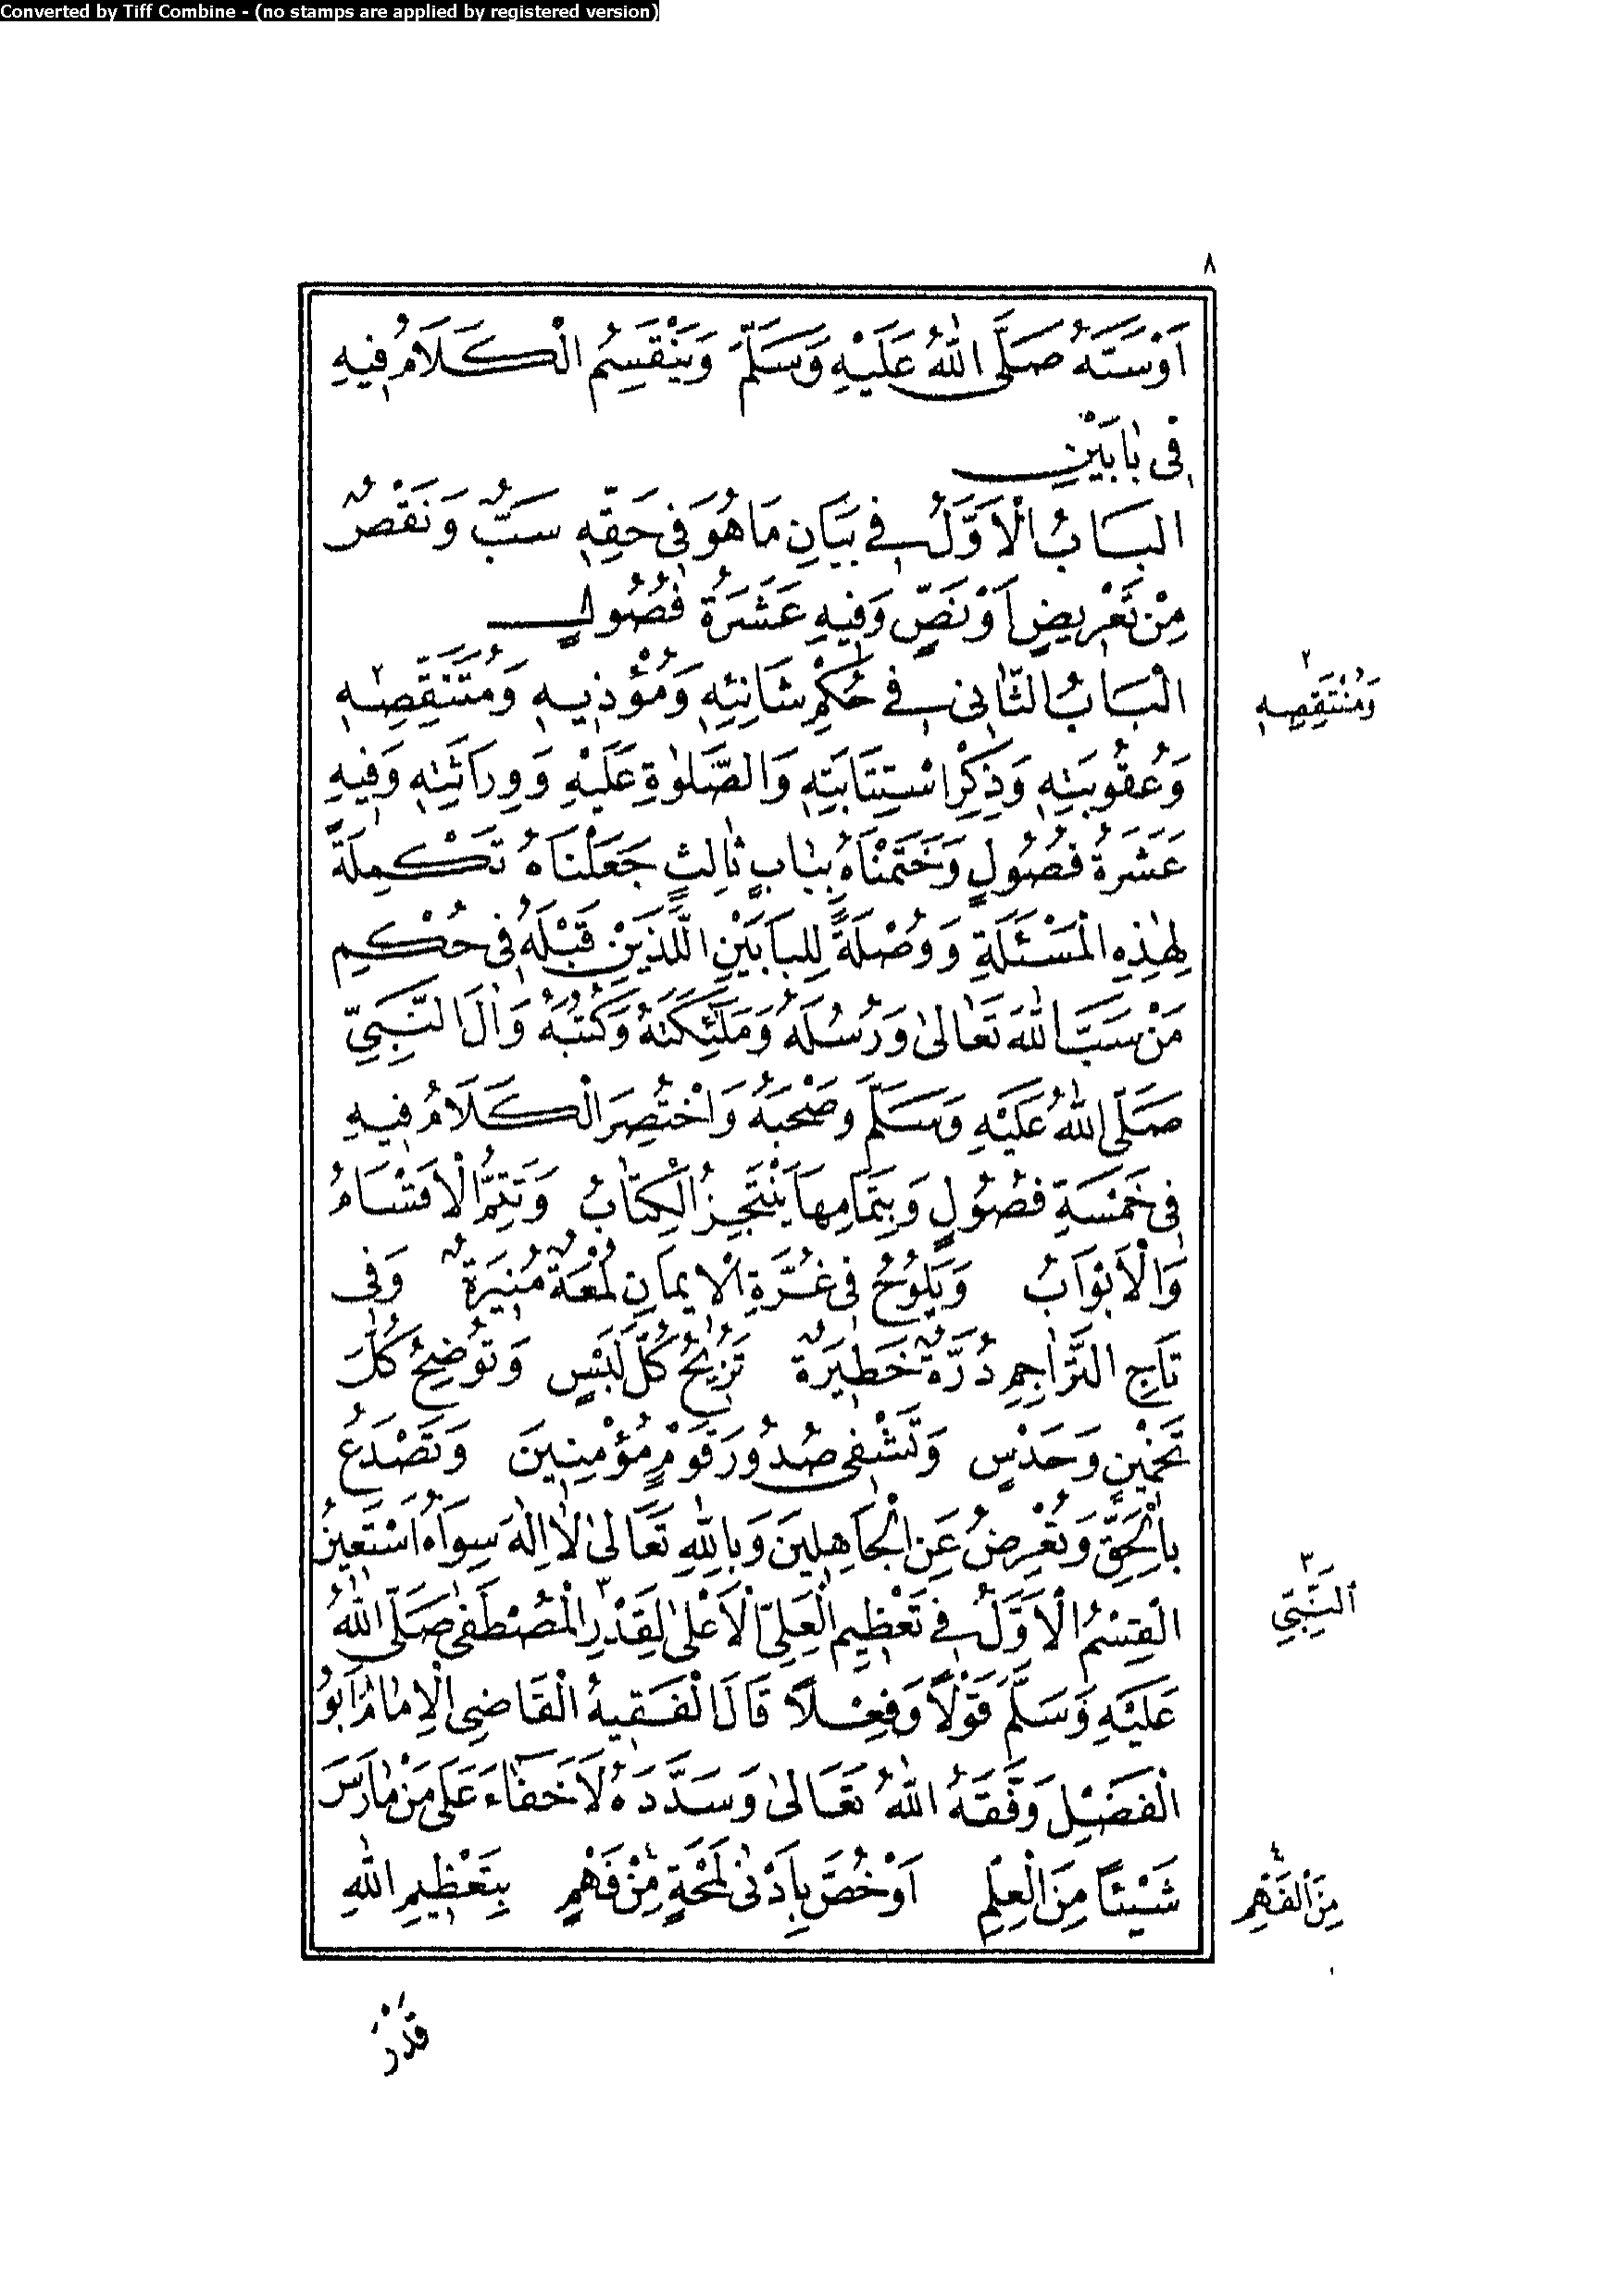 Converted by Tiff Combine - (no stamps are applied by registered version)
٨
اَوْسَبَّهُ صَلَّى اللّٰهُ عَلَيْهِ وَسَلَّمَ وَيَنْقَسِمُ الْكَلَامُ فِيهِ
فِى بَابَيْنِ
الْبَابُ الْاَوَّلُ فِى بَيَانِ مَا هُوَ فِى حَقِّهِ سَبٌّ وَنَقْصٌ
مِنْ تَعْرِيضٍ اَوْ نَصٍّ وَفِيهِ عَشَرَةُ فُصُولٍ
الْبَابُ الثَّانِى فِى حُكْمِ شَانِئِهِ وَمُؤْذِيهِ وَمُتَنَقِّصِهِ ٢
وَمُنْتَقِصِهِ ٢
وَعُقُوبَتِهِ وَذِكْرِ اسْتِتَابَتِهِ وَالصَّلٰوةِ عَلَيْهِ وَوِرَاثَتِهِ وَفِيهِ
عَشَرَةُ فُصُولٍ وَخَتَمْنَاهُ بِبَابٍ ثَالِثٍ جَعَلْنَاهُ تَكْمِلَةً
لِهٰذِهِ الْمَسْئَلَةِ وَوُصْلَةً لِلْبَابَيْنِ اللَّذَيْنِ قَبْلَهُ فِى حُكْمِ
مَنْ سَبَّ اللّٰهَ تَعَالٰى وَرُسُلَهُ وَمَلٰئِكَتَهُ وَكُتُبَهُ وَاٰلَ النَّبِيِّ
صَلَّى اللّٰهُ عَلَيْهِ وَسَلَّمَ وَصَحْبَهُ وَاخْتُصِرَ الْكَلَامُ فِيهِ
فِى خَمْسَةِ فُصُولٍ وَبِتَمَامِهَا يَنْتَجِزُ الْكِتَابُ وَتَتِمُّ الْاَقْسَامُ
وَالْاَبْوَابُ وَيَلُوحُ فِى غُرَّةِ الْاِيمَانِ لُمْعَةٌ مُنِيرَةٌ وَفِى
تَاجِ التَّرَاجِمِ دُرَّةٌ خَطِيرَةٌ تُزِيحُ كُلَّ لَبْسٍ وَتُوَضِّحُ كُلَّ
تَخْمِينٍ وَحَدْسٍ وَتَشْفِى صُدُورَ قَوْمٍ مُؤْمِنِينَ وَتَصْدَعُ
بِالْحَقِّ وَتُعْرِضُ عَنِ الْجَاهِلِينَ وَبِاللّٰهِ تَعَالٰى لَا اِلٰهَ سِوَاهُ اَسْتَعِينُ
الْقِسْمُ الْاَوَّلُ فِى تَعْظِيمِ الْعَلِيِّ الْاَعْلٰى لِقَدْرِ ٣ الْمُصْطَفٰى صَلَّى اللّٰهُ
النَّبِيِّ ٣
عَلَيْهِ وَسَلَّمَ قَوْلًا وَفِعْلًا قَالَ الْفَقِيهُ الْقَاضِى الْاِمَامُ اَبُو
الْفَضْلِ وَفَّقَهُ اللّٰهُ تَعَالٰى وَسَدَّدَهُ لَا خَفَاءَ عَلَى مَنْ مَارَسَ
شَيْئًا مِنَ الْعِلْمِ اَوْ خُصَّ بِاَدْنٰى لَمْحَةٍ مِنْ ٤ فَهْمٍ بِتَعْظِيمِ اللّٰهِ
مِنَ الْفَهْمِ ٤
قَدْرَ